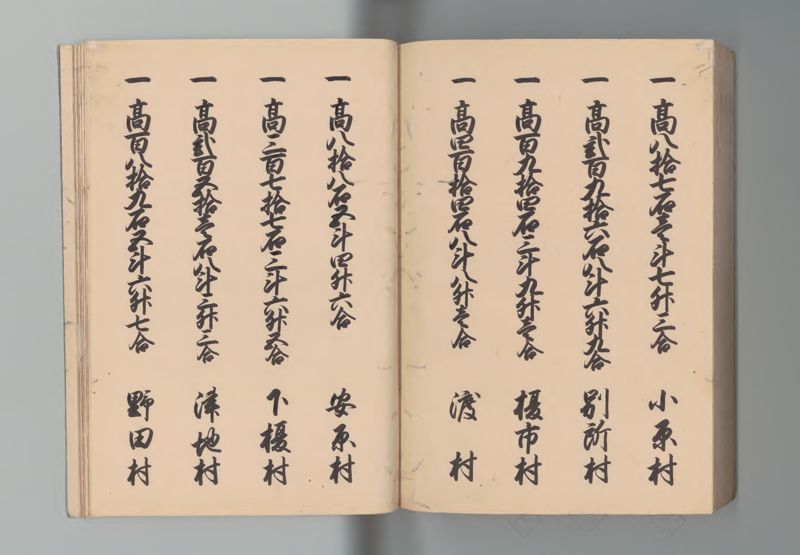 一 高八拾七石壱斗七升三合 小原村
一 高弐百九拾六石八斗六升九合 別所村
一 高百九拾四石三斗九升壱合 榎市村
一 高四百拾四石八斗八升壱合 渡村
一 高八拾八石五斗四升六合 安原村
一 高三百七拾七石三斗六升五合 下榎村
一 高弐百五拾壱石八斗三升三合 津地村
一 高百八拾九石五斗六升七合 野田村